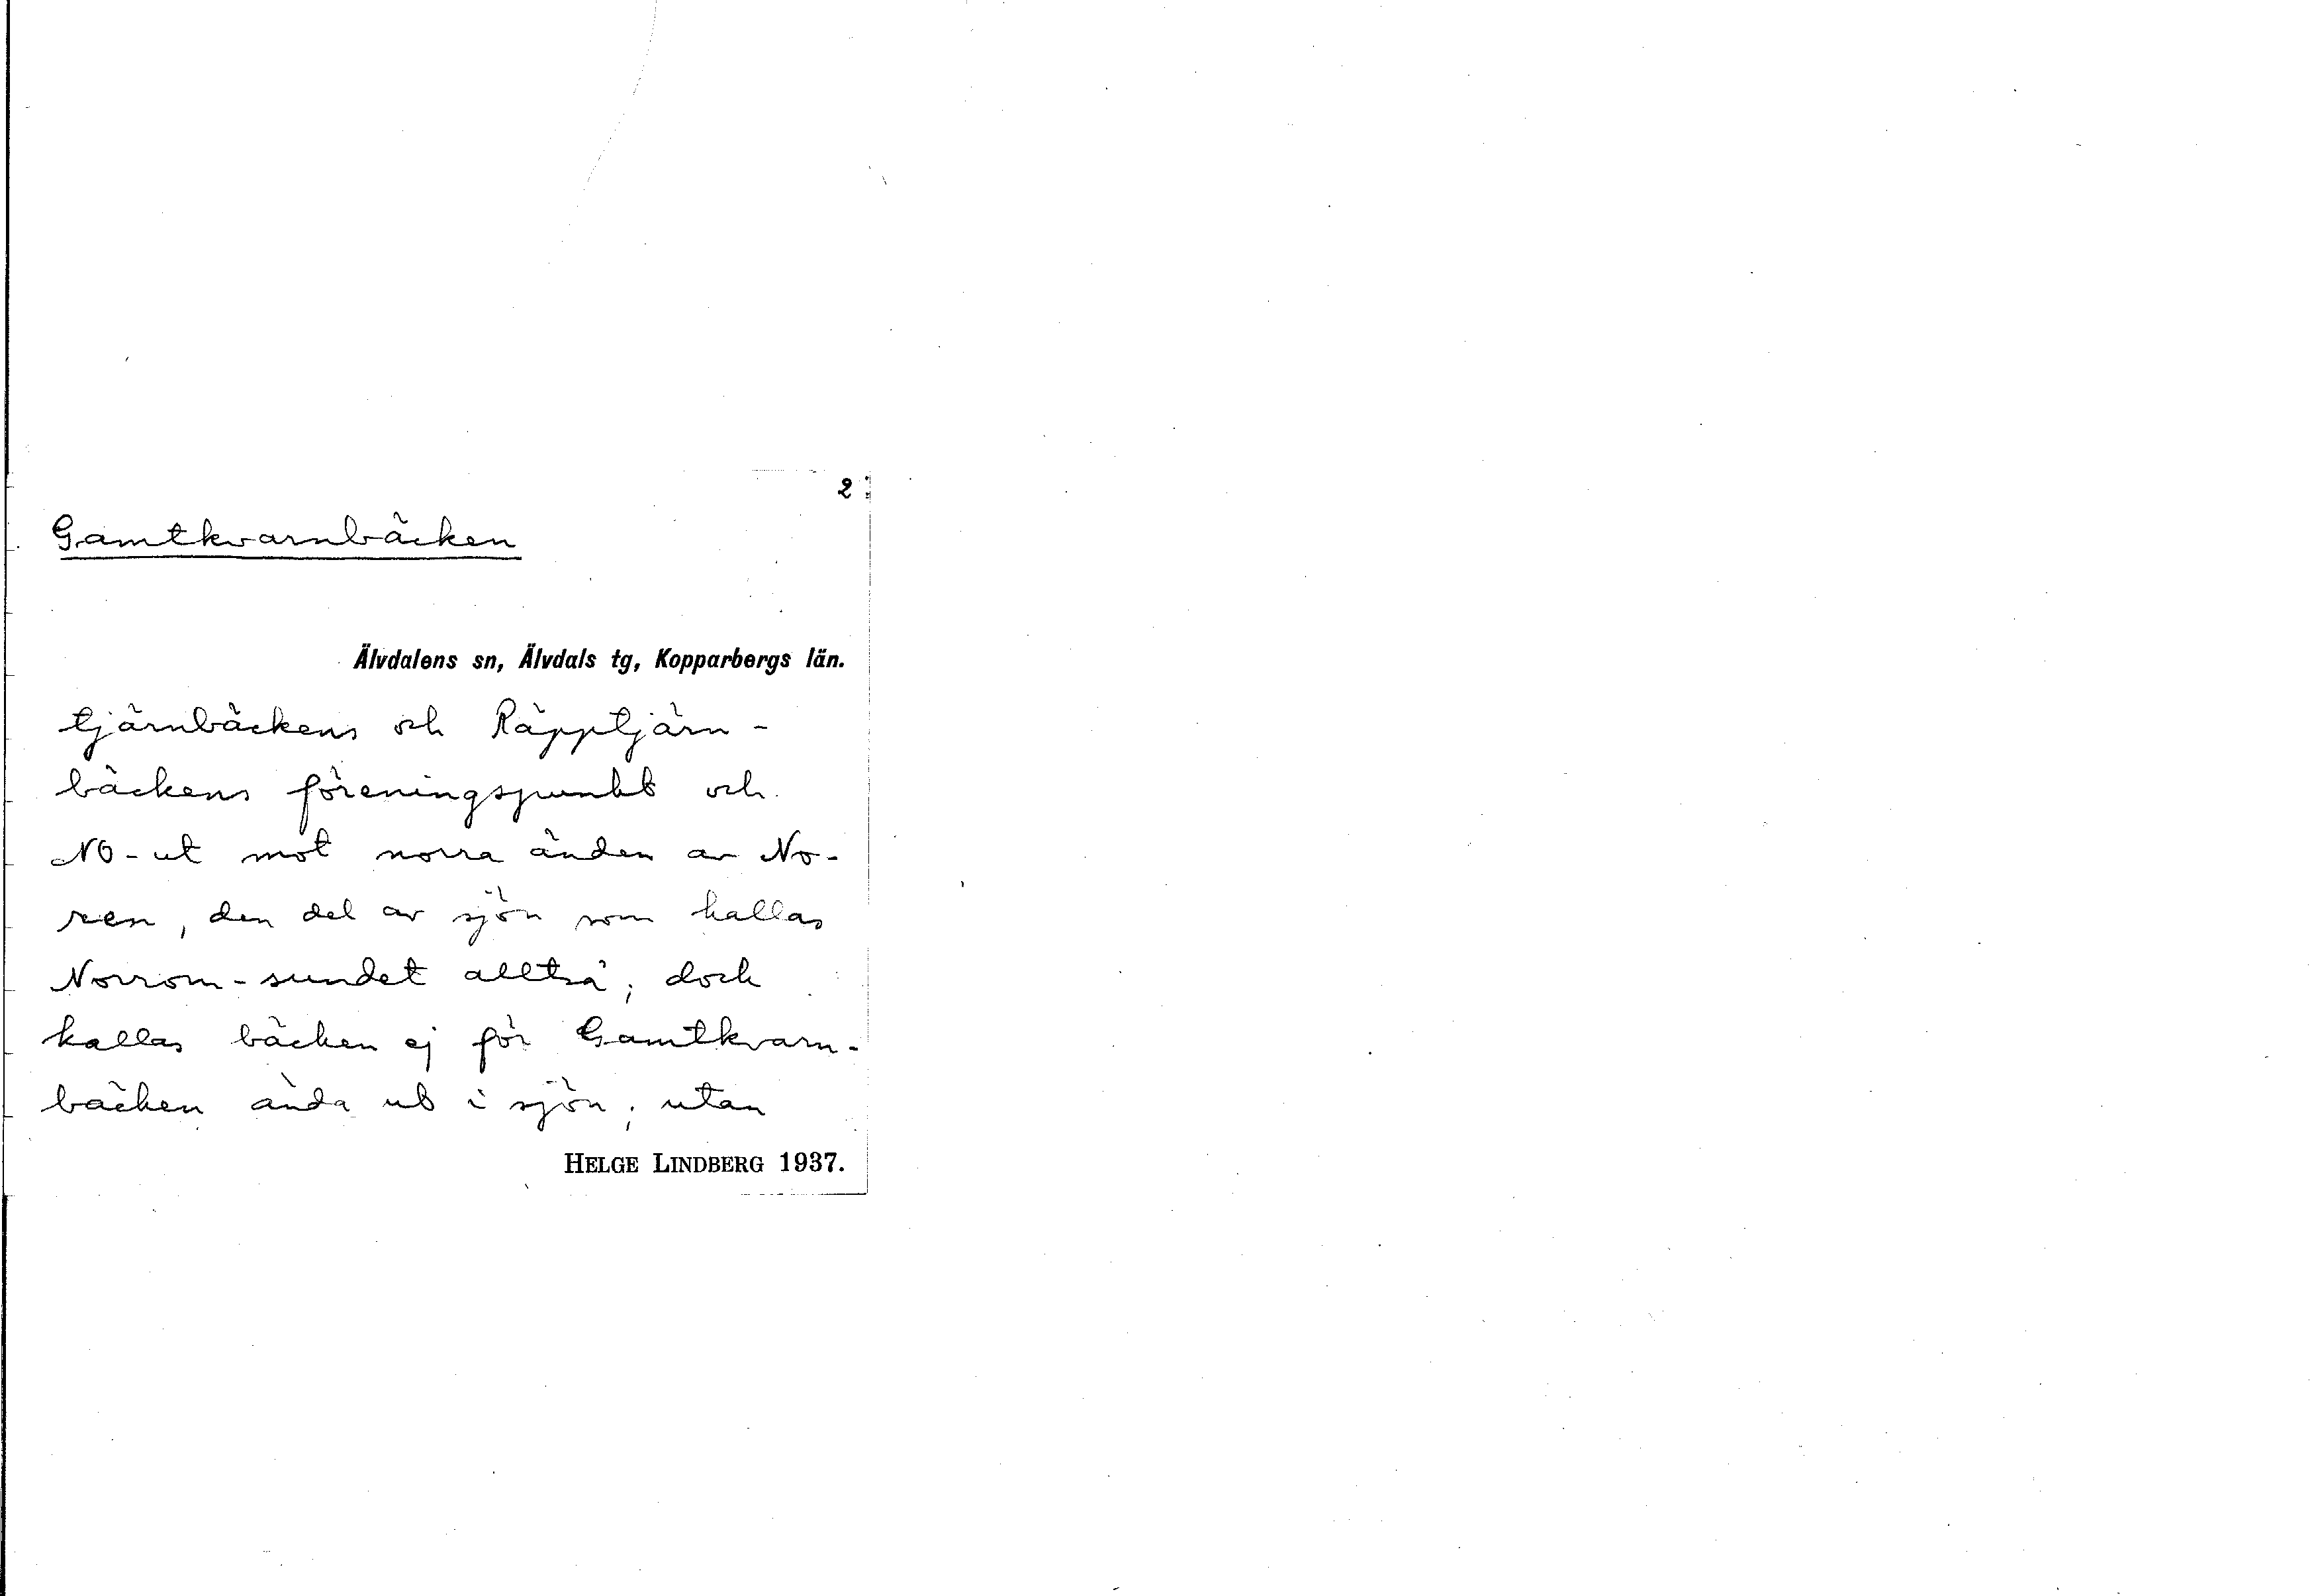 2
Gamtkvarnbäcken
Älvdalens sn, Älvdals tg, Kopparbergs län.
tjärnbäckens och Räpptjärn-
bäckens föreningspunkt och
NO-ut mot norra änden av No-
ren, den del av sjön som kallas
Norrom-sundet alltså; dock
kallas bäcken ej för Gamtkvarn-
bäcken ända ut i sjön, utan
HELGE LINDBERG 1937.